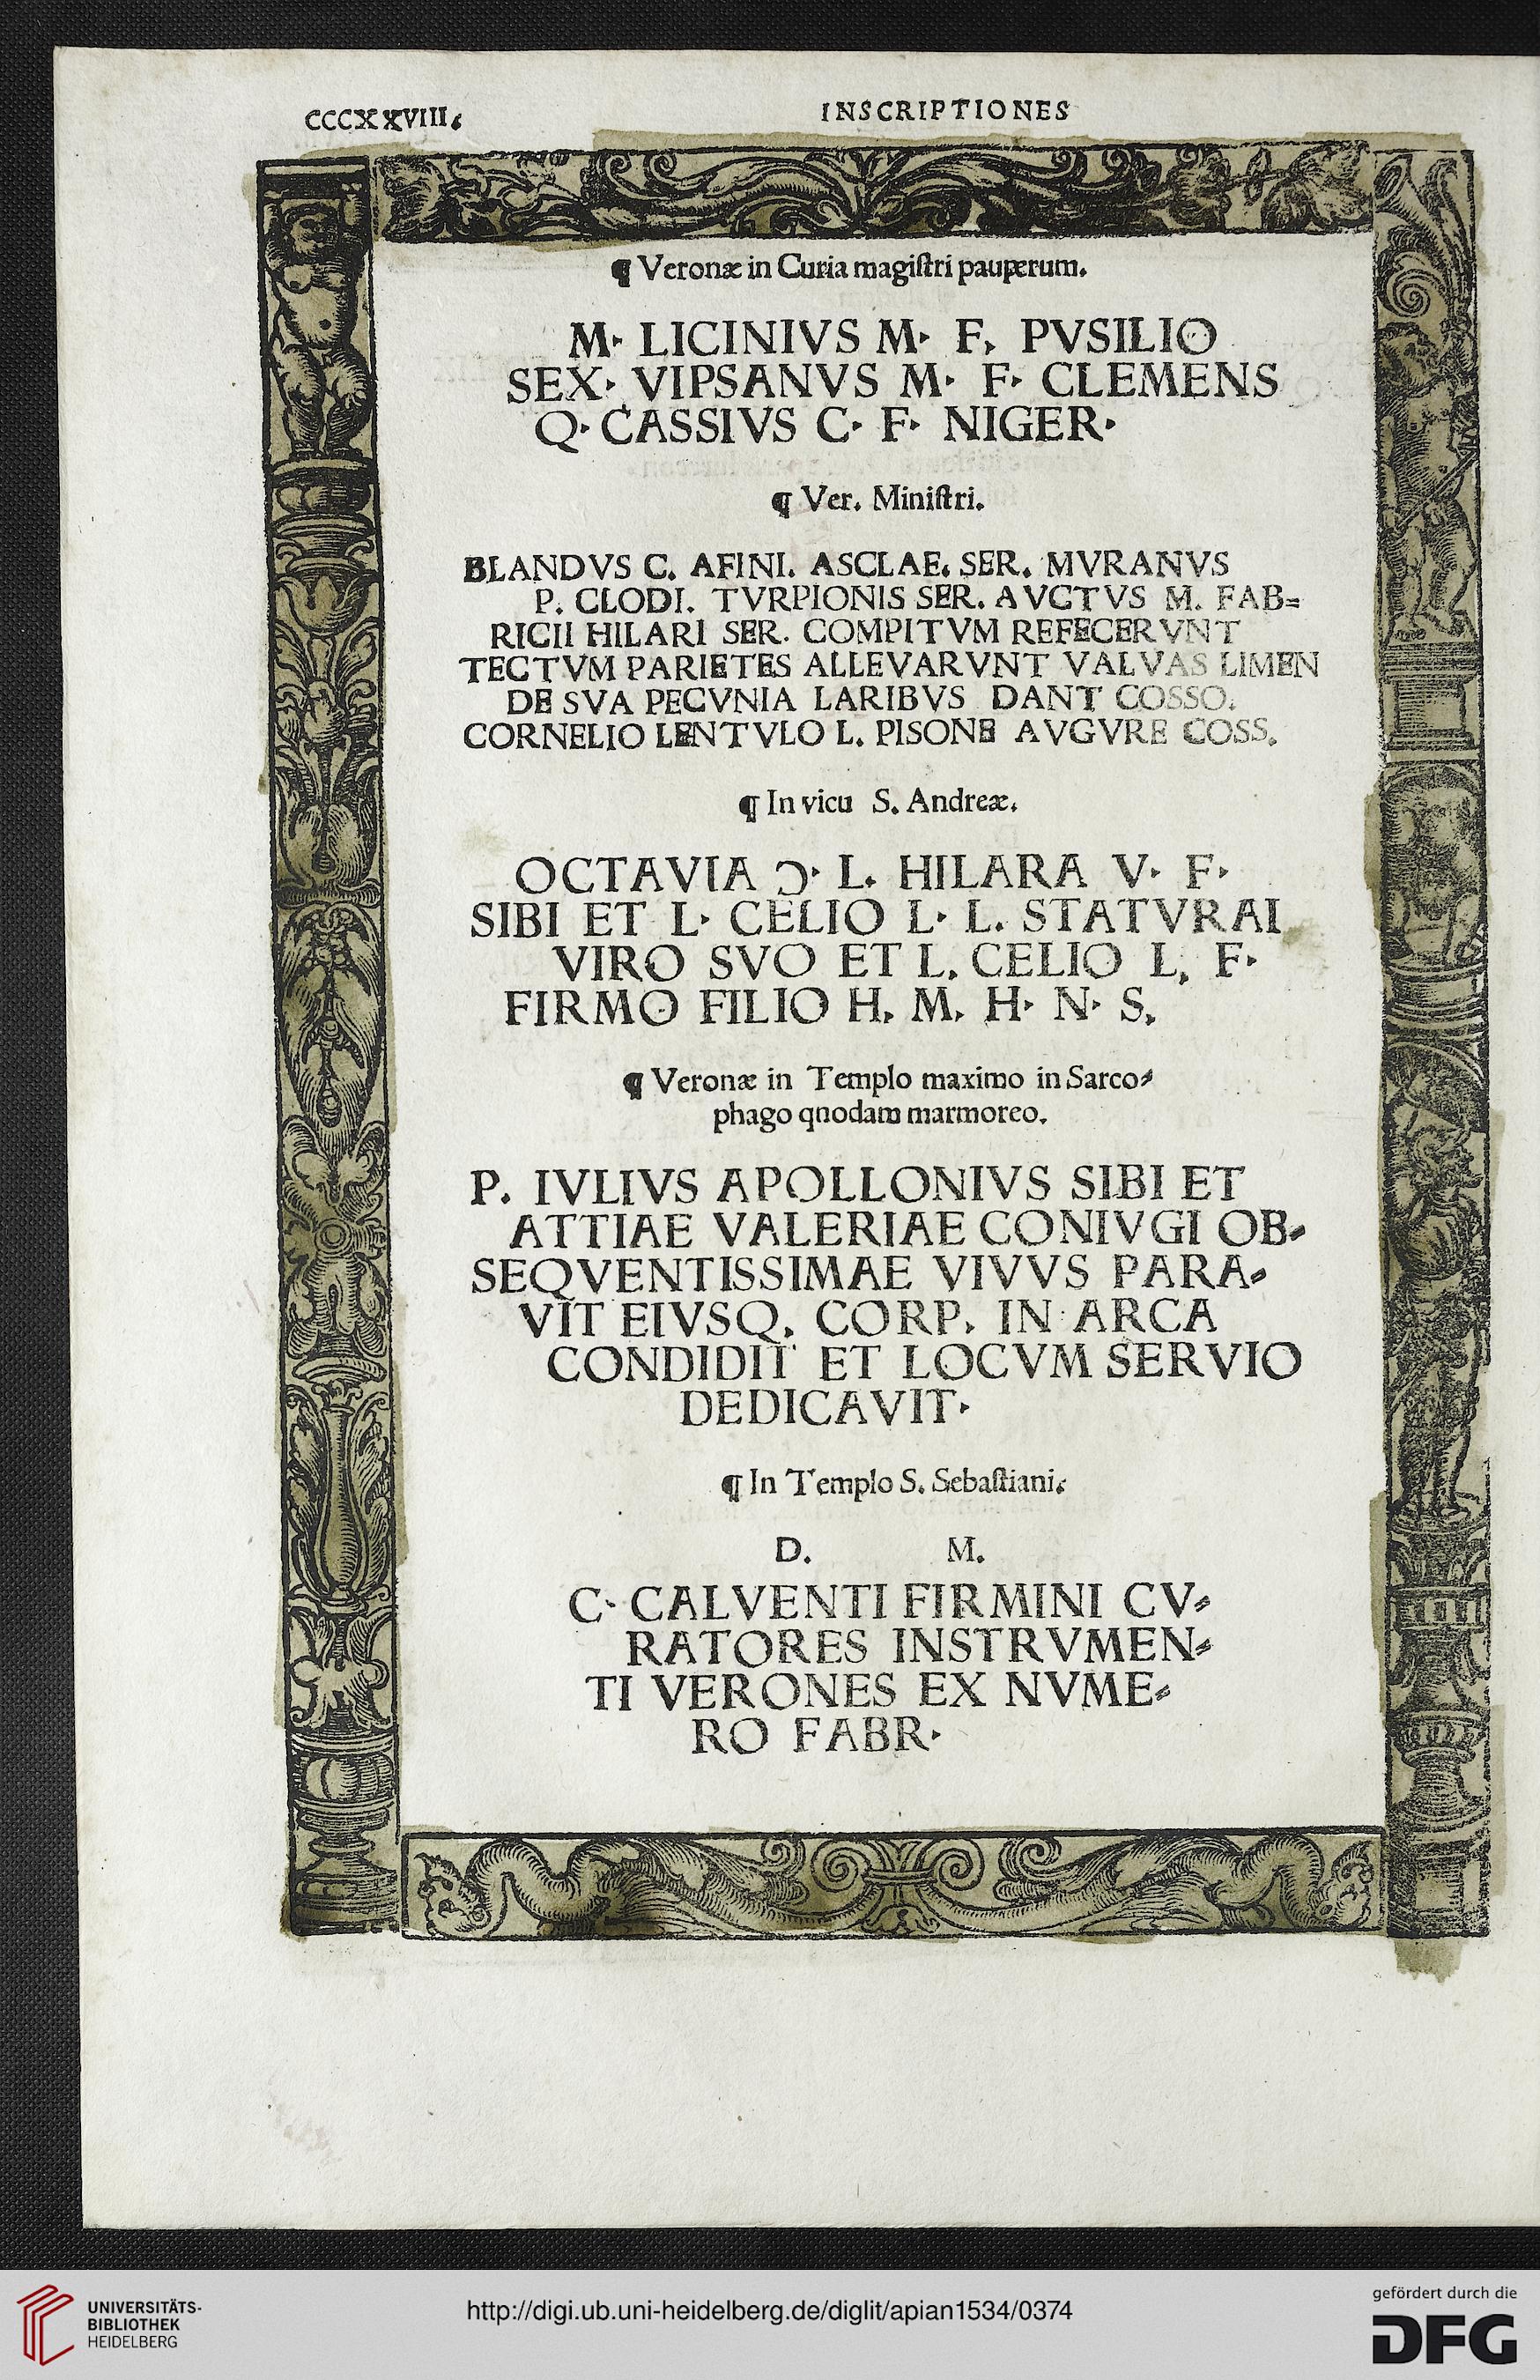 CCCXXVIII.
INSCRIPTIONES
¶ Veronæ in Curia magiſtri pauperum.
M· LICINIVS M· F, PVSILIO
SEX· VIPSANVS M· F· CLEMENS
Q· CASSIVS C· F· NIGER·
¶ Ver. Miniſtri.
BLANDVS C. AFINI. ASCLAE. SER. MVRANVS
P. CLODI. TVRPIONIS SER. AVCTVS M. FAB=
RICII HILARI SER. COMPITVM REFECERVNT
TECTVM PARIETES ALLEVARVNT VALVAS LIMEN
DE SVA PECVNIA LARIBVS DANT COSSO.
CORNELIO LENTVLO L. PISONE AVGVRE COSS.
¶ In vicu S. Andreæ.
OCTAVIA Ↄ· L. HILARA V· F·
SIBI ET L· CELIO L· L. STATVRAI
VIRO SVO ET L. CELIO L, F·
FIRMO FILIO H, M, H· N· S,
¶ Veronæ in Templo maximo in Sarco⸗
phago qnodam marmoreo.
P. IVLIVS APOLLONIVS SIBI ET
ATTIAE VALERIAE CONIVGI OB⸗
SEQVENTISSIMAE VIVVS PARA⸗
VIT EIVSQ, CORP, IN ARCA
CONDIDIT ET LOCVM SERVIO
DEDICAVIT·
¶ In Templo S. Sebaſtiani.
D. M.
C· CALVENTI FIRMINI CV⸗
RATORES INSTRVMEN⸗
TI VERONES EX NVME⸗
RO FABR·
UNIVERSITÄTS-
BIBLIOTHEK
HEIDELBERG
http://digi.ub.uni-heidelberg.de/diglit/apian1534/0374
gefördert durch die
DFG